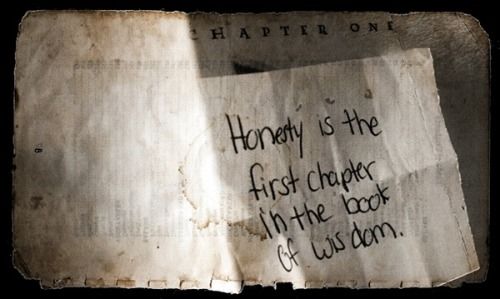 CHAPTER ONE
Honesty is the
first chapter
in the book
of wisdom.